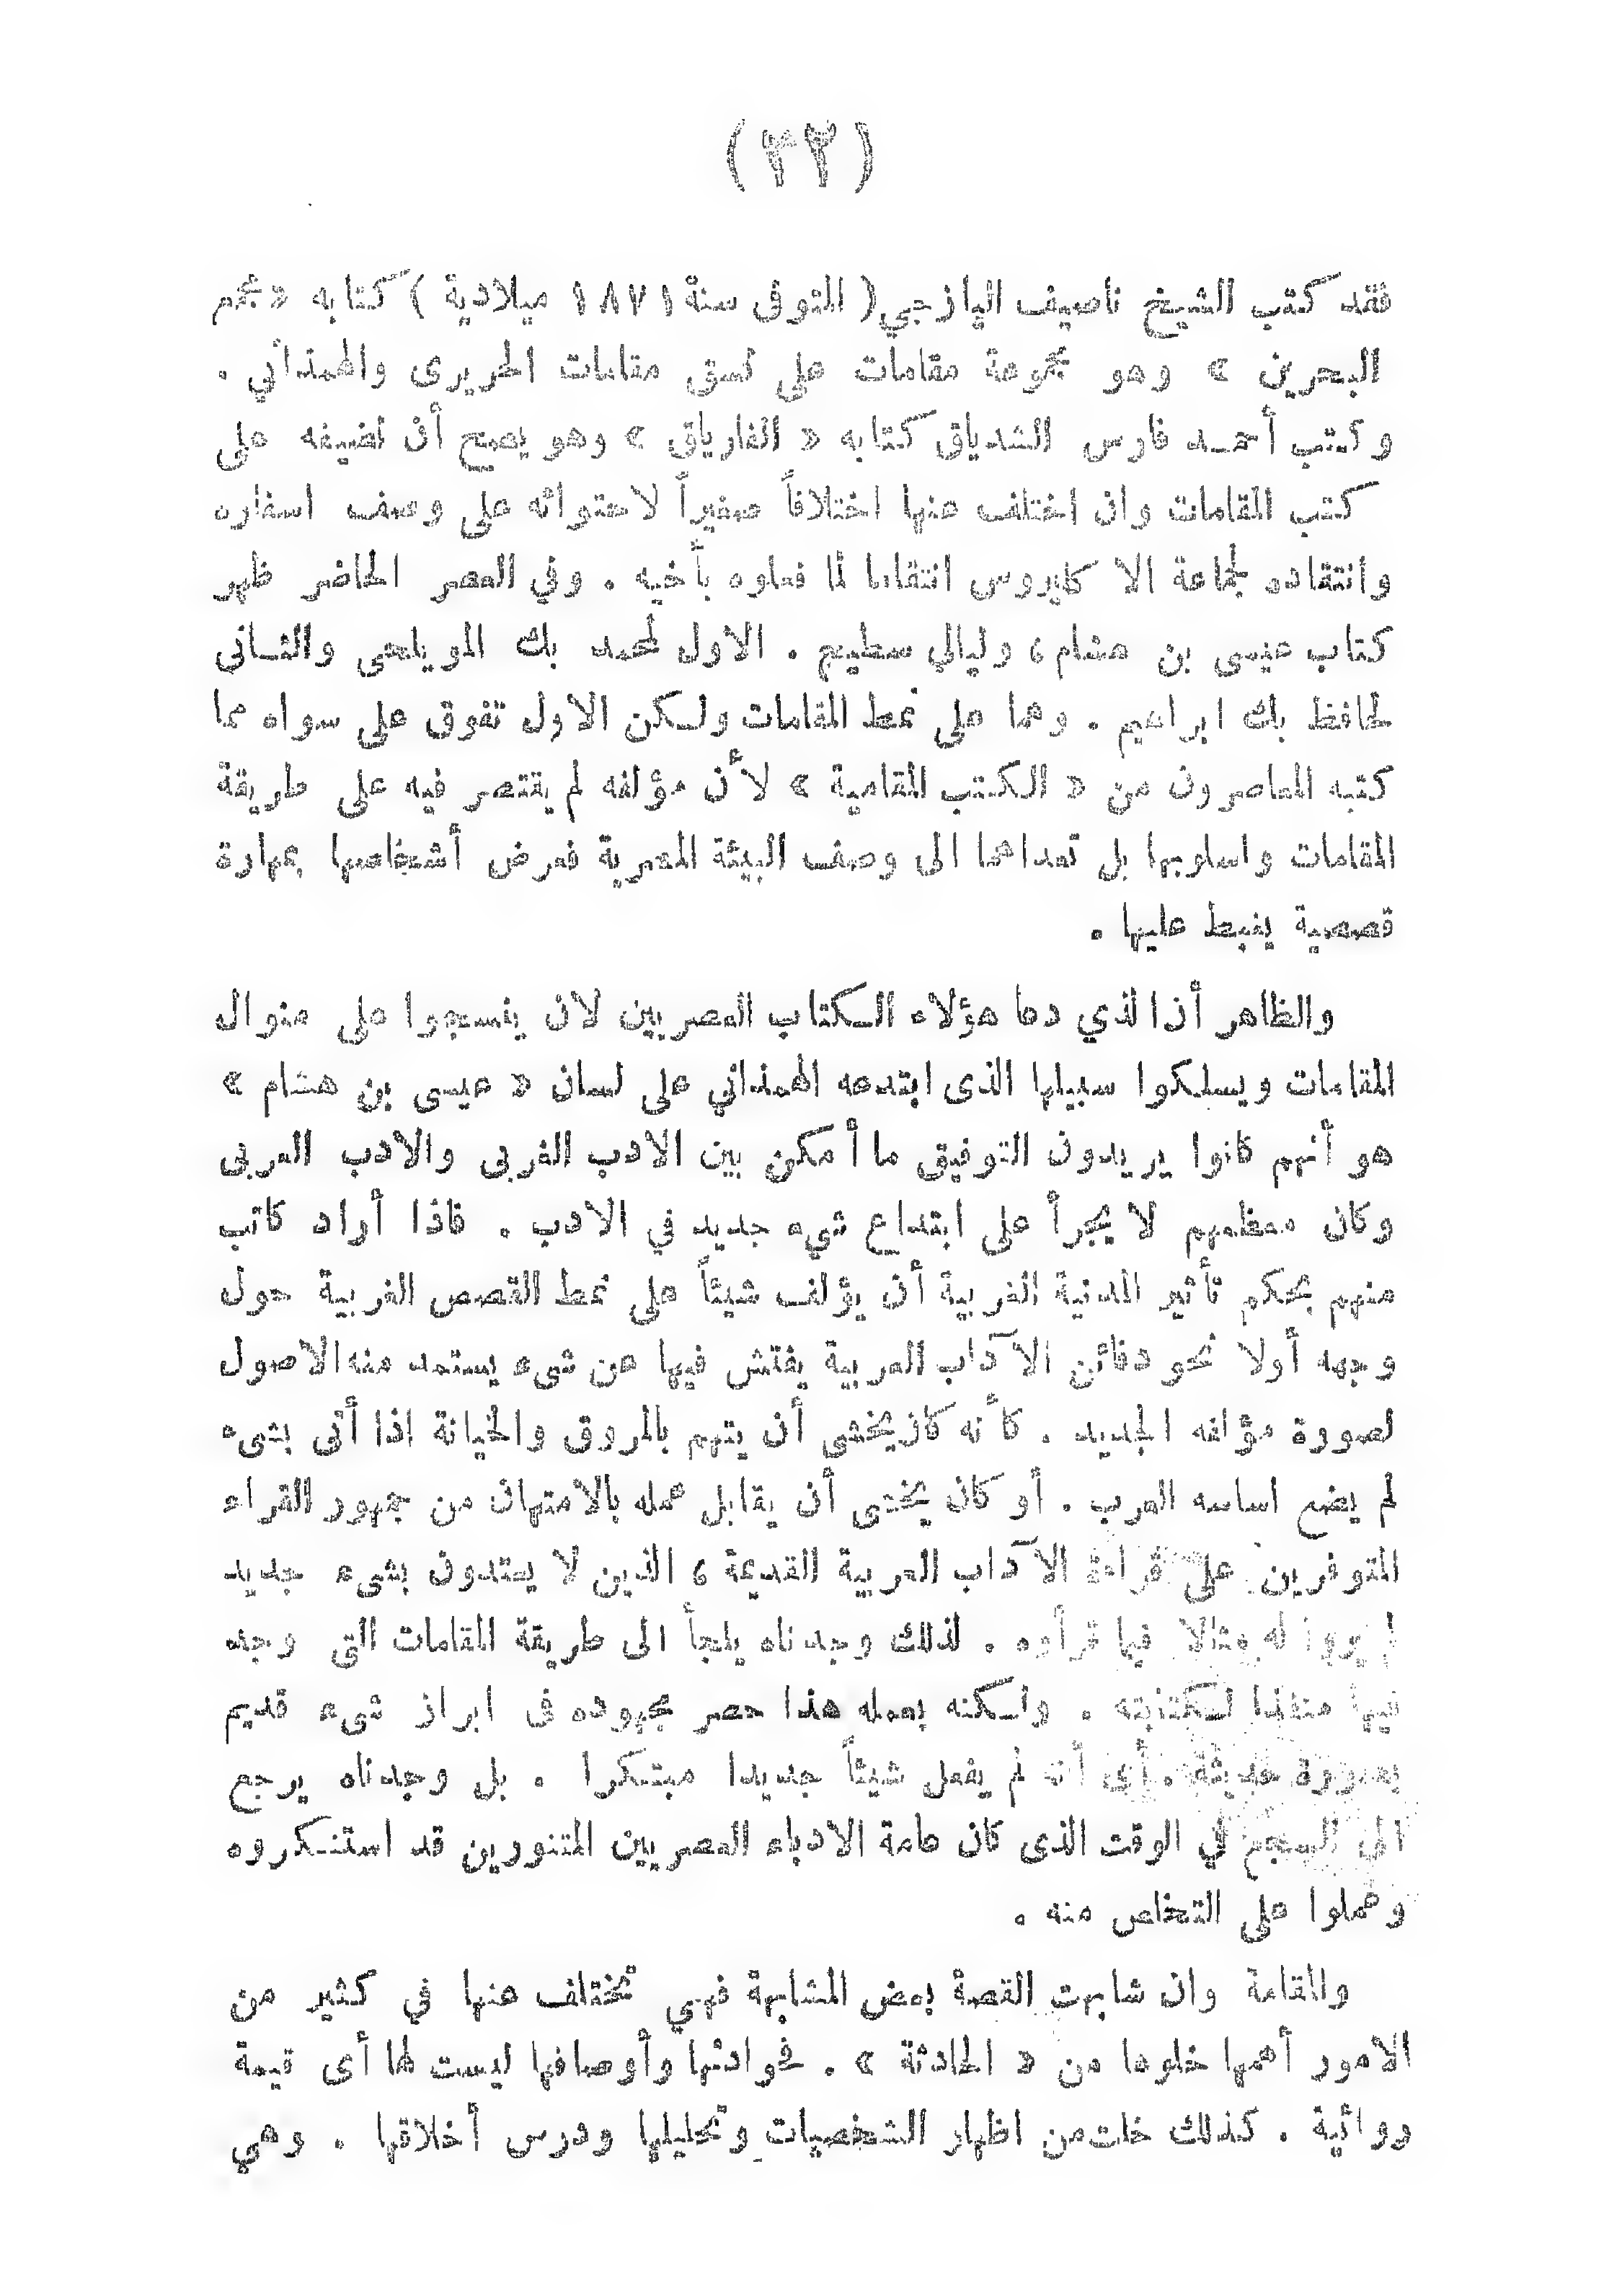 (٣٢)
فقد كتب الشيخ ناصيف اليازجي ( المتوفى سنة ١٨٧١ ميلادية ) كتابه « مجمع
البحرين » وهو مجموعة مقامات على نسق مقامات الحريرى والهمذاني .
وكتب أحمد فارس الشدياق كتابه « الفارياق » وهو يصح أن نضيفه على
كتب المقامات وان اختلف عنها اختلافاً صغيراً لاحتوائه على وصف اسفاره
وانتقاده لجماعة الا كليروس انتقاما لما فعلوه بأخيه . وفي العصر الحاضر ظهر
كتاب عيسى بن هشام ، وليالي سطيح . الاول لمحمد بك المويلحى والثانى
لحافظ بك ابراهيم . وهما على نمط المقامات ولكن الاول تفوق على سواه مما
كتبه المعاصرون من « الكتب المقامية » لأن مؤلفه لم يقتصر فيه على طريقة
المقامات واسلوبها بل تعداهما الى وصف البيئة المصرية فعرض أشخاصها بمهارة
قصصية يغبط عليها .
والظاهر أن الذي دعا هؤلاء الكتاب العصريين لان ينسجوا على منوال
المقامات ويسلكوا سبيلها الذى ابتدعه الهمذاني على لسان « عيسى بن هشام »
هو أنهم كانوا يريدون التوفيق ما أمكن بين الادب الغربى والادب العربى
وكان معظمهم لا يجرأ على ابتداع شيء جديد في الادب . فاذا أراد كاتب
منهم بحكم تأثير المدنية الغربية أن يؤلف شيئاً على نمط القصص الغربية حول
وجهه أولا نحو دفائن الآداب العربية يفتش فيها عن شىء يستمد منه الاصول
لصورة مؤلفه الجديد . كأنه كان يخشى أن يتهم بالمروق والخيانة اذا أتى بشىء
لم يضع اساسه العرب . أو كان يخشى أن يقابل عمله بالامتهان من جمهور القراء
المتوفرين على قراءة الآداب العربية القديمة ، الذين لا يعتدون بشىء جديد
لم يروا له مثالا فيما قرأوه . لذلك وجدناه يلجأ الى طريقة المقامات التى وجد
فيها منفذا لكتابته . ولكنه بعمله هذا حصر مجهوده فى ابراز شىء قديم
بصورة حديثة . أى أنه لم يفعل شيئاً جديدا مبتكرا . بل وجدناه يرجع
الى السجع في الوقت الذى كان عامة الادباء العصريين المتنورين قد استنكروه
وعملوا على التخلص منه .
والمقامة وان شابهت القصة بعض المشابهة فهي تختلف عنها في كثير من
الامور أهمها خلوها من « الحادثة » . فحوادثها وأوصافها ليست لها أى قيمة
روائية . كذلك خلت من اظهار الشخصيات وتحليلها ودرس أخلاقها . وهي